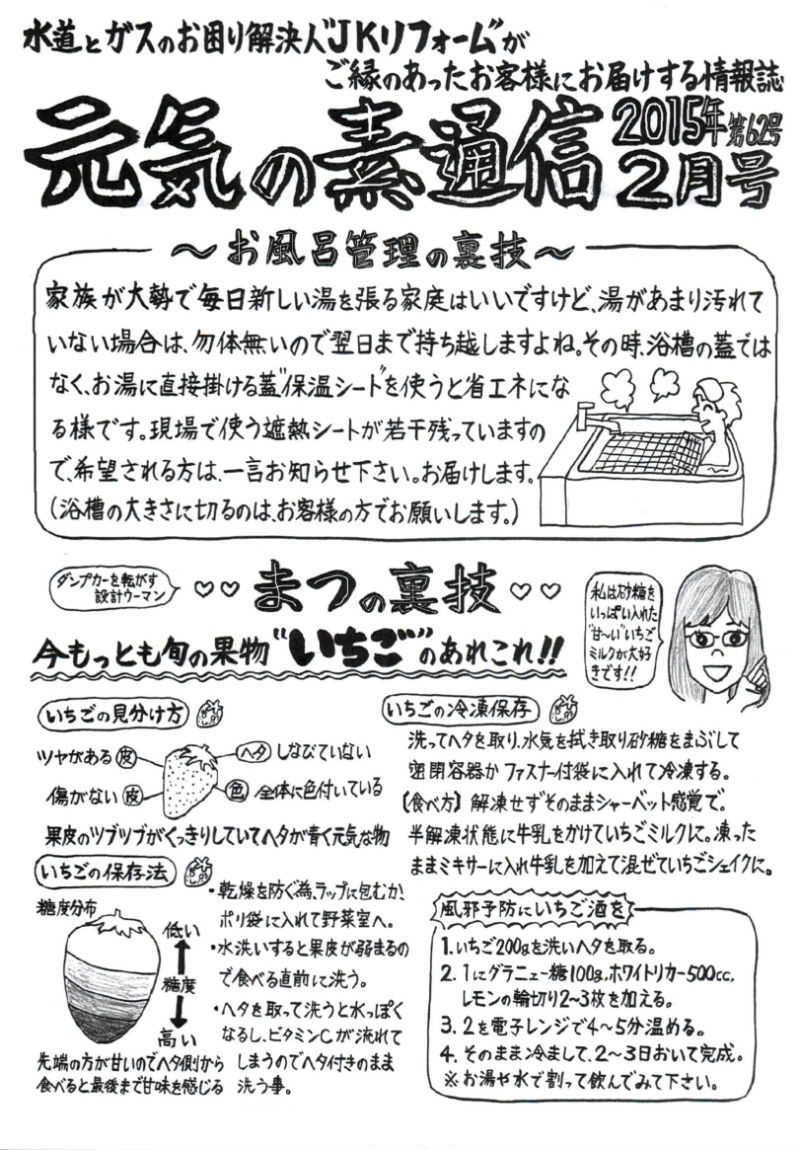 水道とガスのお困り解決人"JKリフォーム"が
ご縁のあったお客様にお届けする情報誌
元気の素通信
2015年 第62号
2月号
～お風呂管理の裏技～
家族が大勢で毎日新しい湯を張る家庭はいいですけど、湯があまり汚れて
いない場合は、勿体無いので翌日まで持ち越しますよね。その時、浴槽の蓋では
なく、お湯に直接掛ける蓋"保温シート"を使うと省エネにな
る様です。現場で使う遮熱シートが若干残っていますの
で、希望される方は、一言お知らせ下さい。お届けします。
(浴槽の大きさに切るのは、お客様の方でお願いします。)
ダンプカーを転がす
設計ウーマン
♡♡ まつの裏技 ♡♡
今もっとも旬の果物"いちご"のあれこれ!!
私は砂糖を
いっぱい入れた
"甘〜い"いちご
ミルクが大好
きです!!
いちごの見分け方
ツヤがある 皮
ヘタ しなびていない
傷がない 皮
色 全体に色付いている
果皮のツブツブがくっきりしていてヘタが青く元気な物
いちごの保存法
糖度分布
低い
糖度
高い
先端の方が甘いのでヘタ側から
食べると最後まで甘味を感じる
・乾燥を防ぐ為、ラップに包むか、
ポリ袋に入れて野菜室へ。
・水洗いすると果皮が弱まるの
で食べる直前に洗う。
・ヘタを取って洗うと水っぽく
なるし、ビタミンCが流れて
しまうのでヘタ付きのまま
洗う事。
いちごの冷凍保存
洗ってヘタを取り、水気を拭き取り砂糖をまぶして
密閉容器か ファスナー付袋に入れて冷凍する。
〔食べ方〕解凍せずそのままシャーベット感覚で。
半解凍状態に牛乳をかけていちごミルクに。凍った
ままミキサーに入れ牛乳を加えて混ぜていちごシェイクに。
風邪予防にいちご酒を
1. いちご200gを洗いヘタを取る。
2. 1にグラニュー糖100g、ホワイトリカー500cc、
レモンの輪切り2~3枚を加える。
3. 2を電子レンジで4~5分温める。
4. そのまま冷まして、2~3日おいて完成。
※お湯や水で割って飲んでみて下さい。